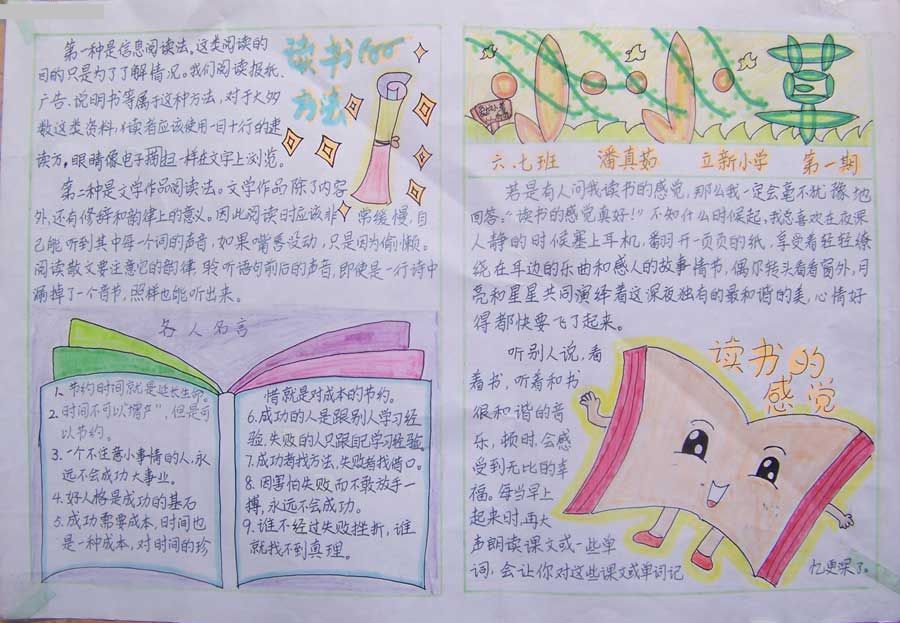 读书的
方法
第一种是信息阅读法。这类阅读的
目的只是为了了解情况。我们阅读报纸、
广告、说明书等属于这种方法,对于大多
数这类资料,读者应该使用一目十行的速
读方,眼睛像电子扫描一样在文字上浏览。
第二种是文学作品阅读法。文学作品除了内容
外,还有修辞和韵律上的意义。因此阅读时应该非常缓慢,自
己能听到其中每一个词的声音,如果嘴唇没动,只是因为偷懒。
阅读散文要注意它的韵律,聆听语句前后的声音,即使是一行诗中
漏掉了一个音节,照样也能听出来。
名人名言
1、节约时间就是延长生命。
2、时间不可以增产",但是可
以节约。
3、一个不注意小事情的人,永
远不会成功大事业。
4、好人格是成功的基石
5、成功需要成本,时间也
是一种成本,对时间的珍
惜就是对成本的节约。
6、成功的人是跟别人学习经
验,失败的人只跟自己学习经验
7、成功者找方法,失败者找借口。
8、因害怕失败而不敢放手一
搏,永远不会成功。
9、谁不经过失败挫折,谁
就找不到真理。
六、七班 潘真茹 立新小学 第一期
若是有人问我读书的感觉,那么我一定会毫不犹豫地
回答:"读书的感觉真好!"不知什么时候起,我总喜欢在夜深
人静的时候塞上耳机,翻开一页页的纸,享受着轻轻缭
绕在耳边的乐曲和感人的故事情节,偶尔转头看看窗外,月
亮和星星共同演绎着这深夜独有的最和谐的美,心情好
得都快要飞了起来。
读书的
感觉
听别人说,看
着书,听着和书
很和谐的音
乐,顿时会感
受到无比的幸
福。每当早上
起来时,再大
声朗读课文或一些单
词,会让你对这些课文或单词记
忆更深了。